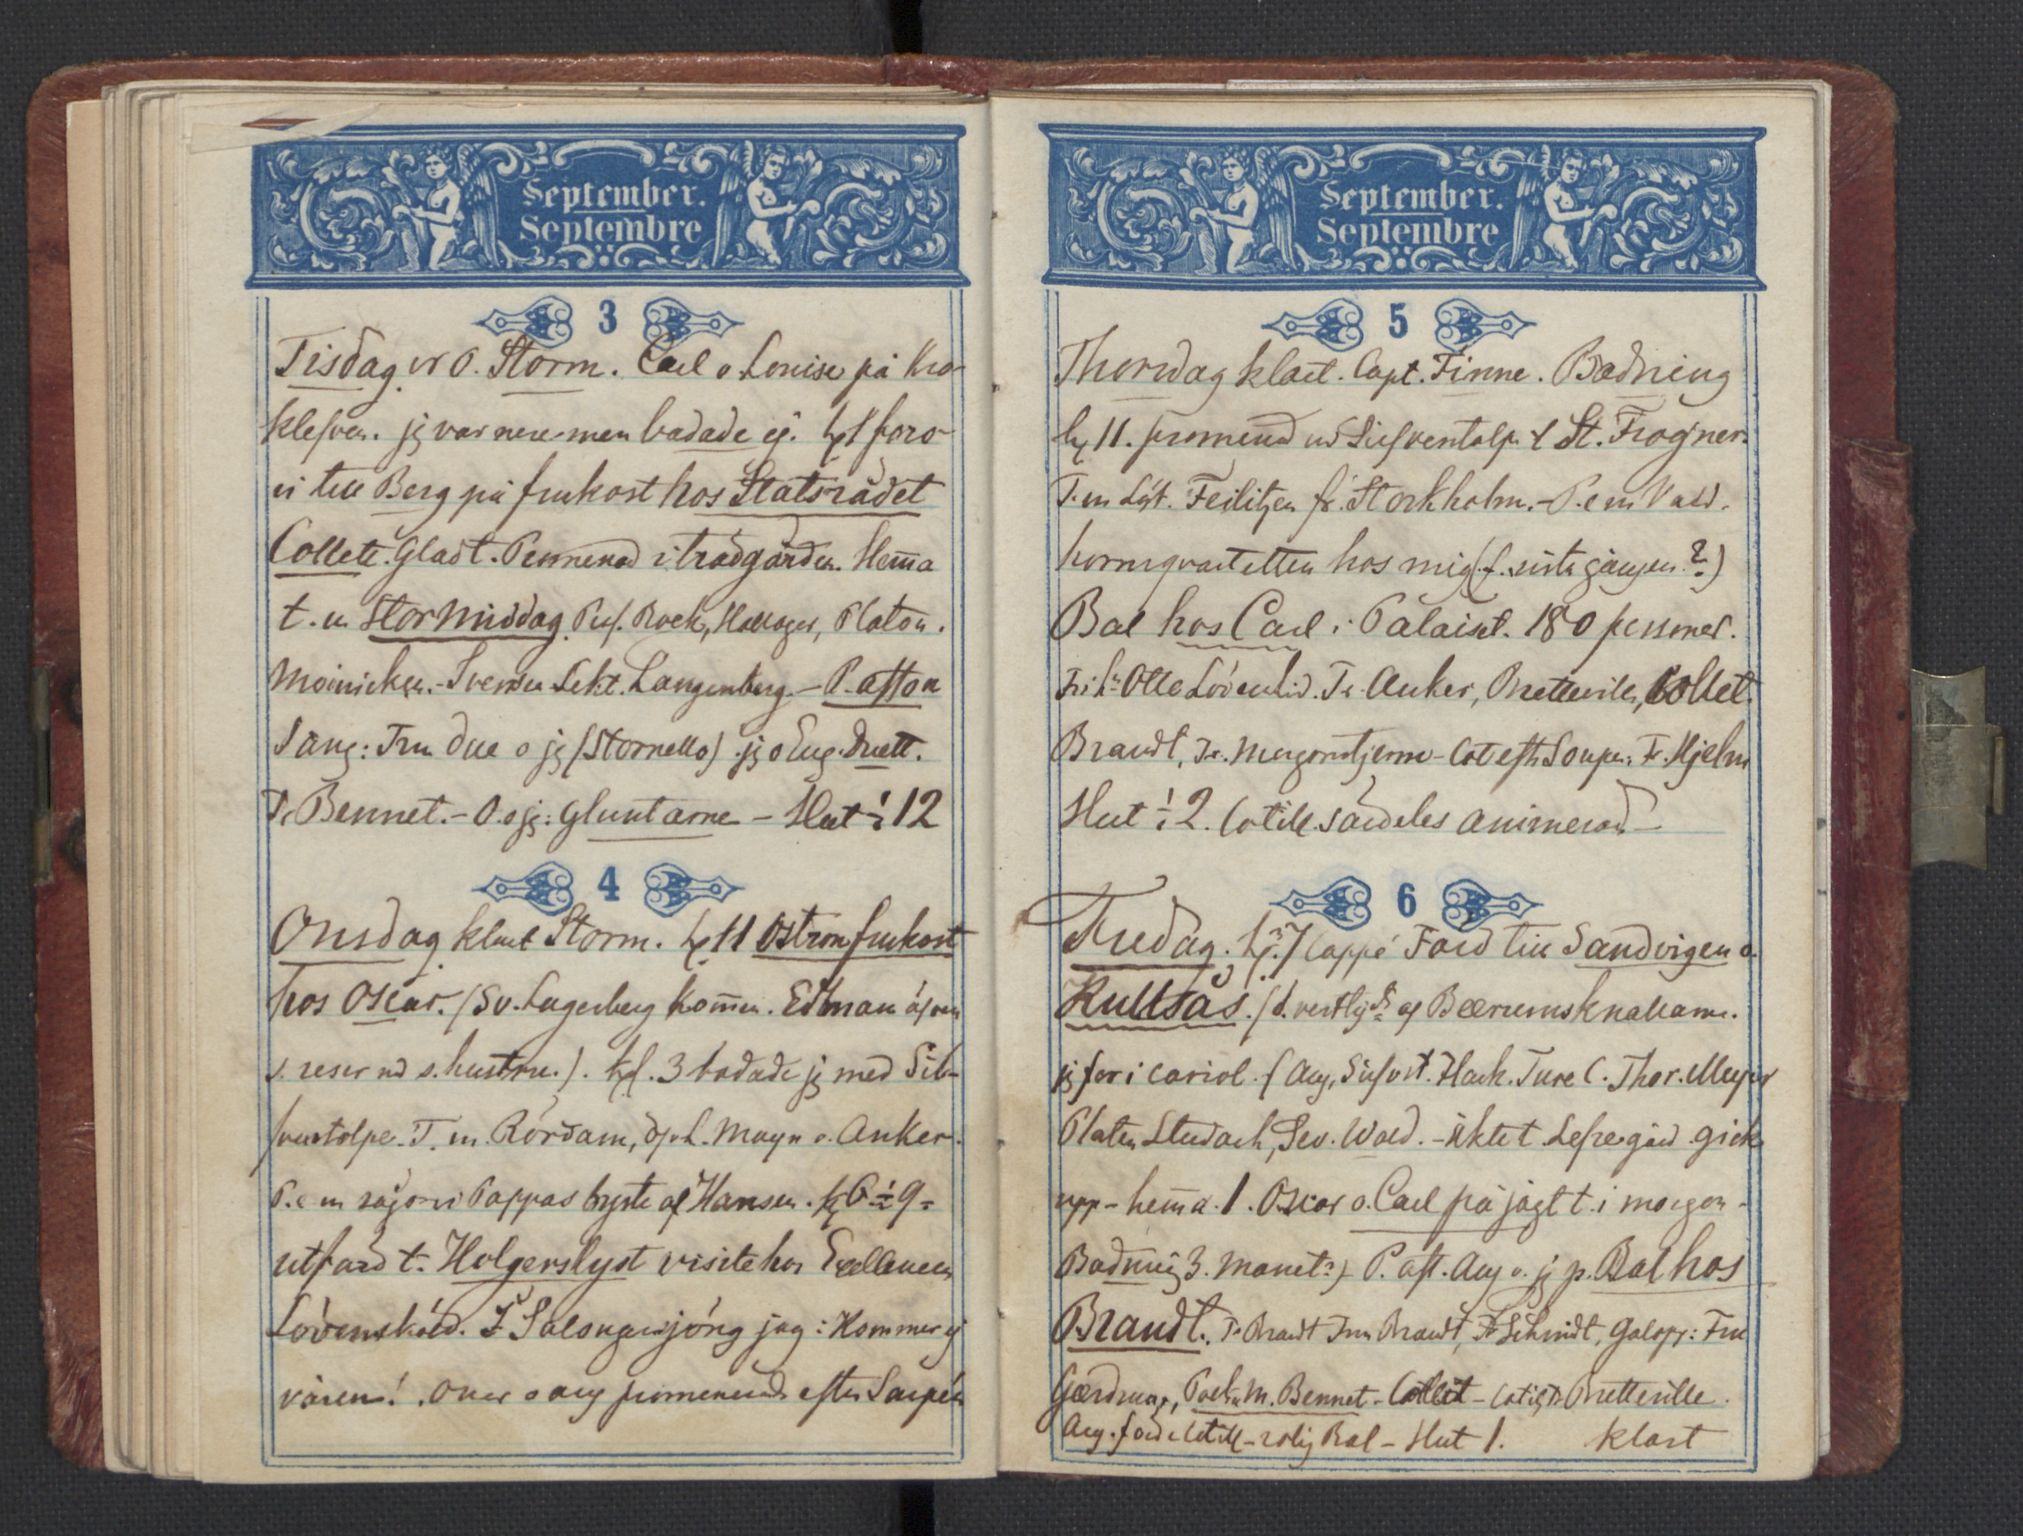 September.
Septembre
3
Tisdag vr O. Storm. Carl o Louise på Kro-
klefven. jg var nere men badade ej. kl 1 foro
vi till Berg på frukost hos Statsrådet
Collett. Gladt. Promenad i trädgården. Hem̄a
t. m Stor Middag Prof. Boek, Platon.
Svenska Sekt. Langenberg. - P. afton
Sång: Fru Due o jg (Stornello) jg o Eug. Duett.
Fr Bennet. - O. o jg: Gluntarne - Slut ½ 12
4
Onsdag klart Storm. kl 11 Ostron frukost
hos Oscar. (Sv. Lagerberg kom̄en. Edman äfven
s. reser md s. hustru.). kl. 3 badade jg med Silf-
verstolpe. T. m. Rördam, Öfv.L. Mayn o. Anker.
P. e m sågo vi Pappas byste af Hansen. kl 6 ½ 9
utfard t. Holgerslyst visite hos Excellencen
Lövensköld. I Salongen sjöng jag: Kommer ej
våren! . Oscar o aug promenerade efter Soupén
September.
Septembre
5
Thorsdag klart. Capt. Finne. Badning
kl 11. promenad md Silfverstolpe t St. Frogner.
T. m Löjt. Feilitzen fr. Stockholm. - P. e m Vald-
hornqvartetten hos mig (f. sista gången?)
Bal hos Carl i Palaiset. 180 personer.
Otto Lövenskiold. Fr. Anker, Bretteville, Collet.
Brandt, Fr. Morgenstjerne - Cot eft Soupén: Fr. Hjelm
Slut ½ 2. Cotill. särdeles animerad -
6
Fredag. kl. 7 Cappé Färd till Sandvigen o.
Kullsås. (d. vestligste af Bærumsknallarne.
jg for i cariol. (Aug, Silfverst. Hack. Ture C. Thor. Meyer
Platen Steubach, Sev. Wald. - Åkte t. gård gick
upp - hem̄a 1. Oscar o. Carl på jagt t. i morgon -
Badning 3. P. aft. Aug o. jg p. Bal hos
Brandt. Fr Brandt Fru Brandt, Fr Schmidt, Galopp: Fru
M. Bennet - Collet - Cotil Fr Bretteville.
Aug. förde Cotill - rolig Bal - Slut 1. klart